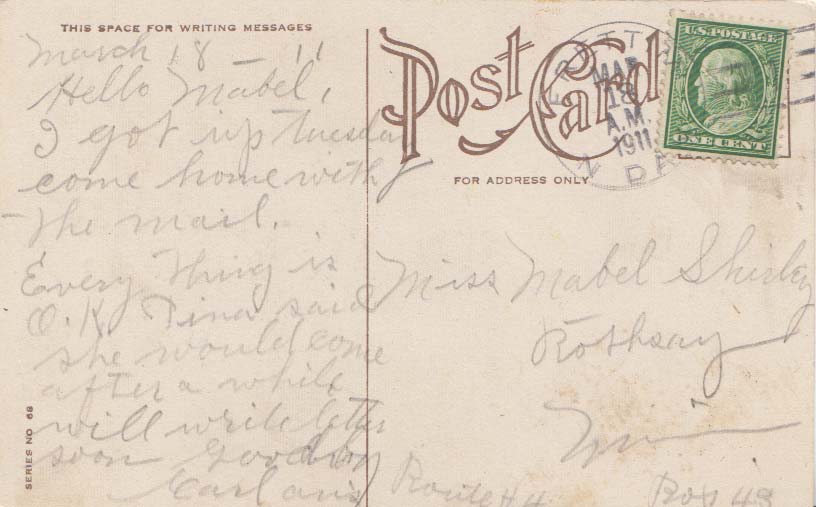 THIS SPACE FOR WRITING MESSAGES
March 18 11
Hello Mabel,
I got up Tuesday
come home with
the mail.
Every thing is
O.K. Tina said
she would come
after a while
will write letter
soon Goodby
Carl
SERIES NO 68
Post Card
FOR ADDRESS ONLY
MAR
18
A.M.
1911
N DAK
U.S. POSTAGE
ONE CENT
Miss Mabel Shirley
Rothsay
Minn
Route # 4 Box 48